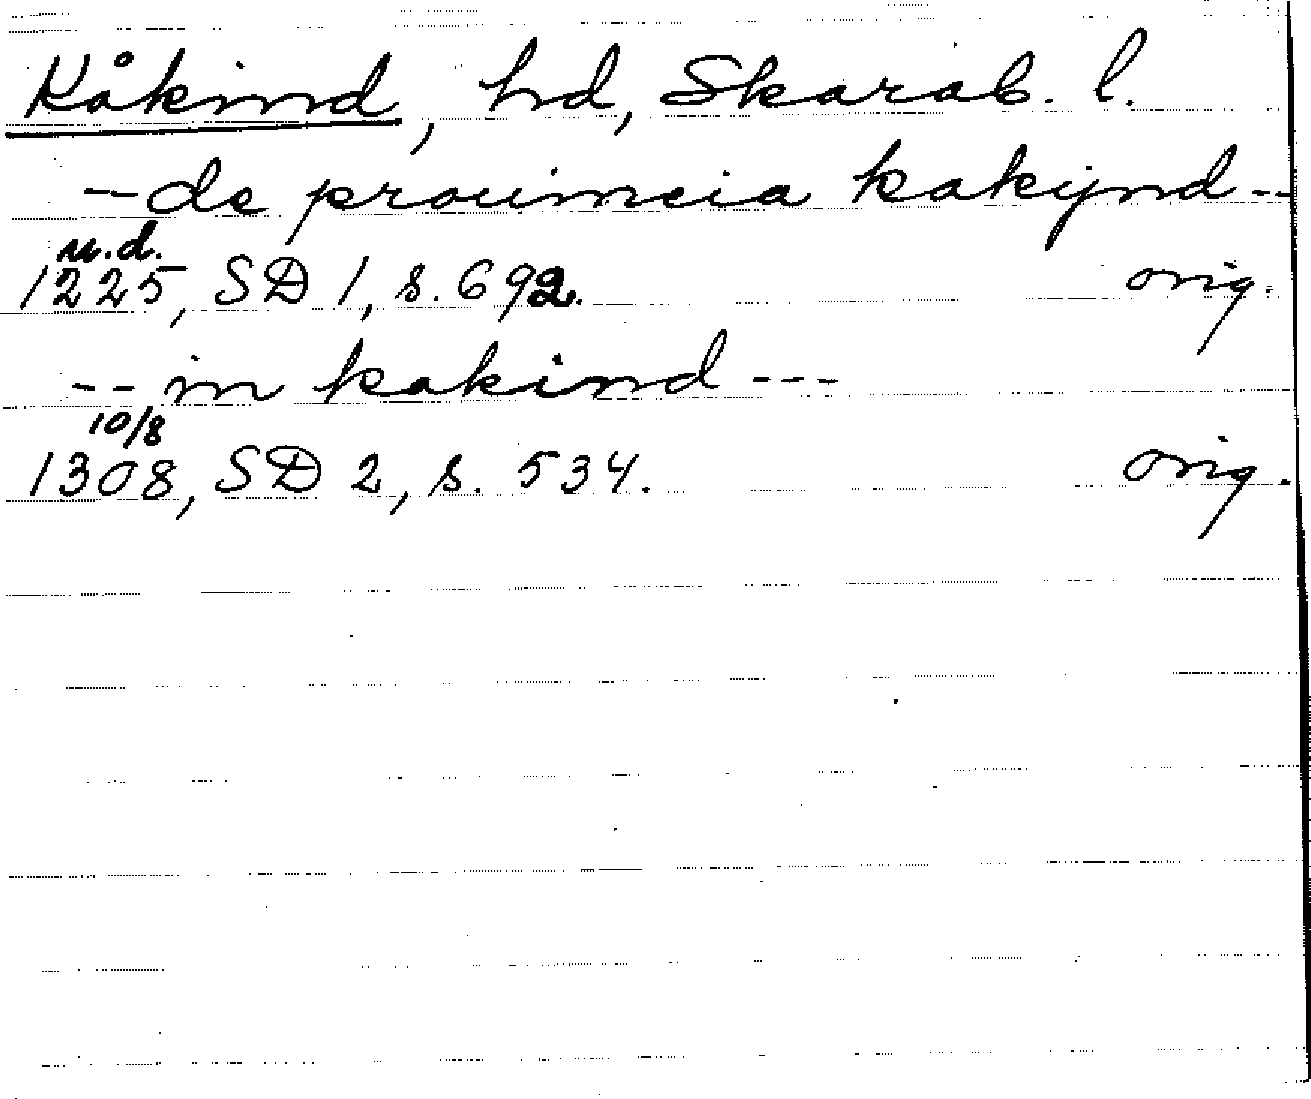 Kåkind, hd, Skarab. l.
- de prouincia kakynd --
u.d.
1225, SD 1, s. 692. orig.
-- in kakind ---
10/8
1308, SD 2, s. 534. orig.